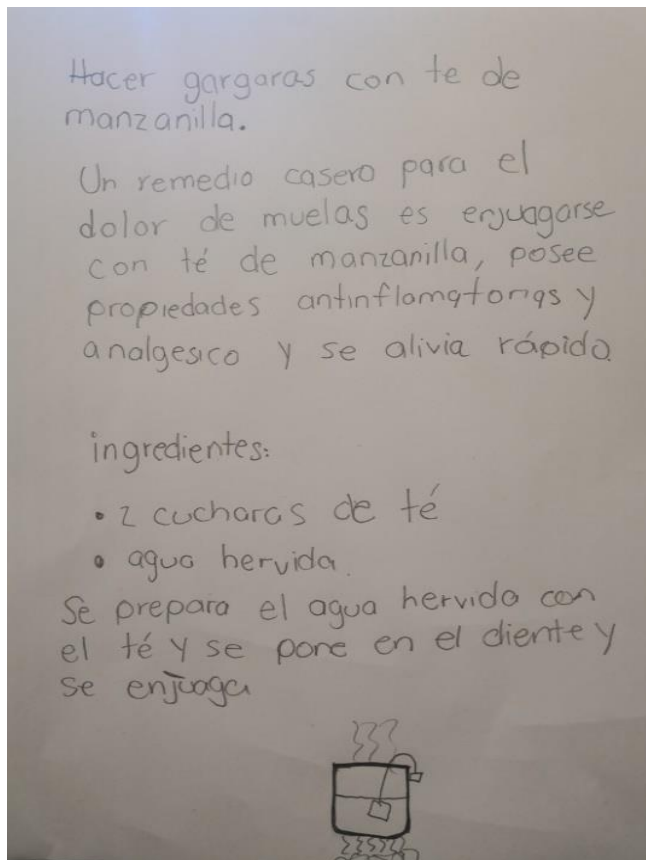 Hacer gargaras con te de
manzanilla.
Un remedio casero para el
dolor de muelas es enjuagarse
con té de manzanilla, posee
propiedades antinflamatorias y
analgesico y se alivia rápido.
ingredientes:
• 2 cucharas de té
• agua hervida.
Se prepara el agua hervida con
el té y se pone en el diente y
se enjuaga